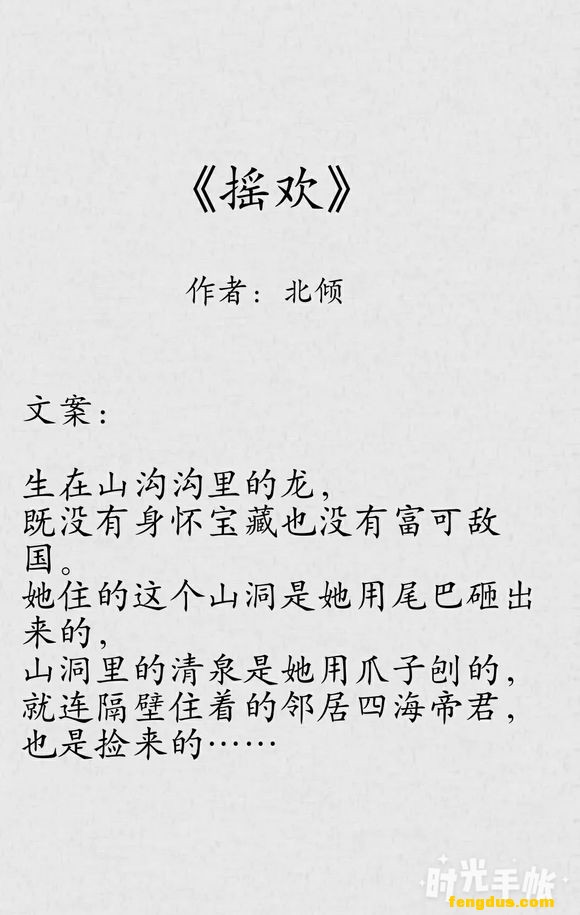 《摇欢》
作者：北倾
文案：
生在山沟沟里的龙，
既没有身怀宝藏也没有富可敌
国。
她住的这个山洞是她用尾巴砸出
来的，
山洞里的清泉是她用爪子刨的，
就连隔壁住着的邻居四海帝君，
也是捡来的……
时光手帐
fengdus.com